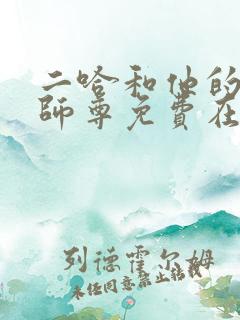 二哈和他的
師尊免費在
列德霍尔姆
未经同意禁止转载